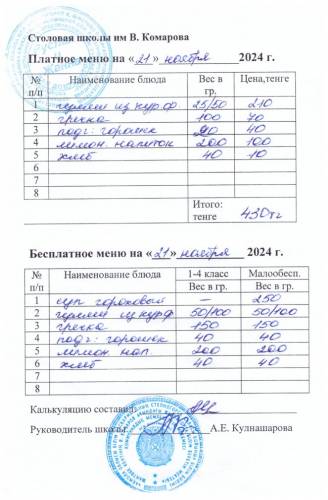 Столовая школы им В. Комарова
Платное меню на «21» ноября 2024 г.
№ п/п Наименование блюда Вес в гр. Цена,тенге
1 гуляш из кур.ф. 25/50 210
2 гречка 100 70
3 подг: горошек 20 40
4 лимон. напиток 200 100
5 хлеб 40 10
6
7
8
Итого: тенге 430тг
Бесплатное меню на «21» ноября 2024 г.
№ п/п Наименование блюда 1-4 класс Малообесп.
Вес в гр. Вес в гр.
1 суп гороховый — 250
2 гуляш из кур.ф 50/100 50/100
3 гречка 150 150
4 подг: горошек 40 40
5 лимон нап. 200 200
6 хлеб 40 40
7
8
Калькуляцию составил:
Руководитель школы: А.Е. Кулнашарова